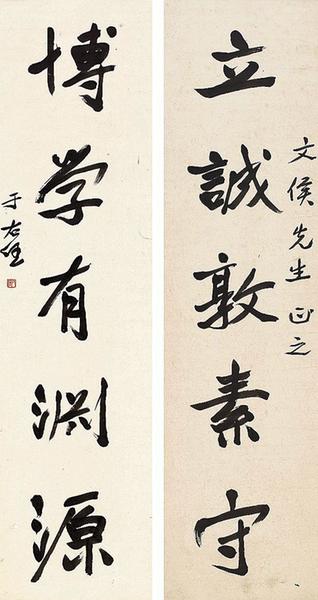 立誠敦素守
文侯先生正之
博学有渊源
于右任